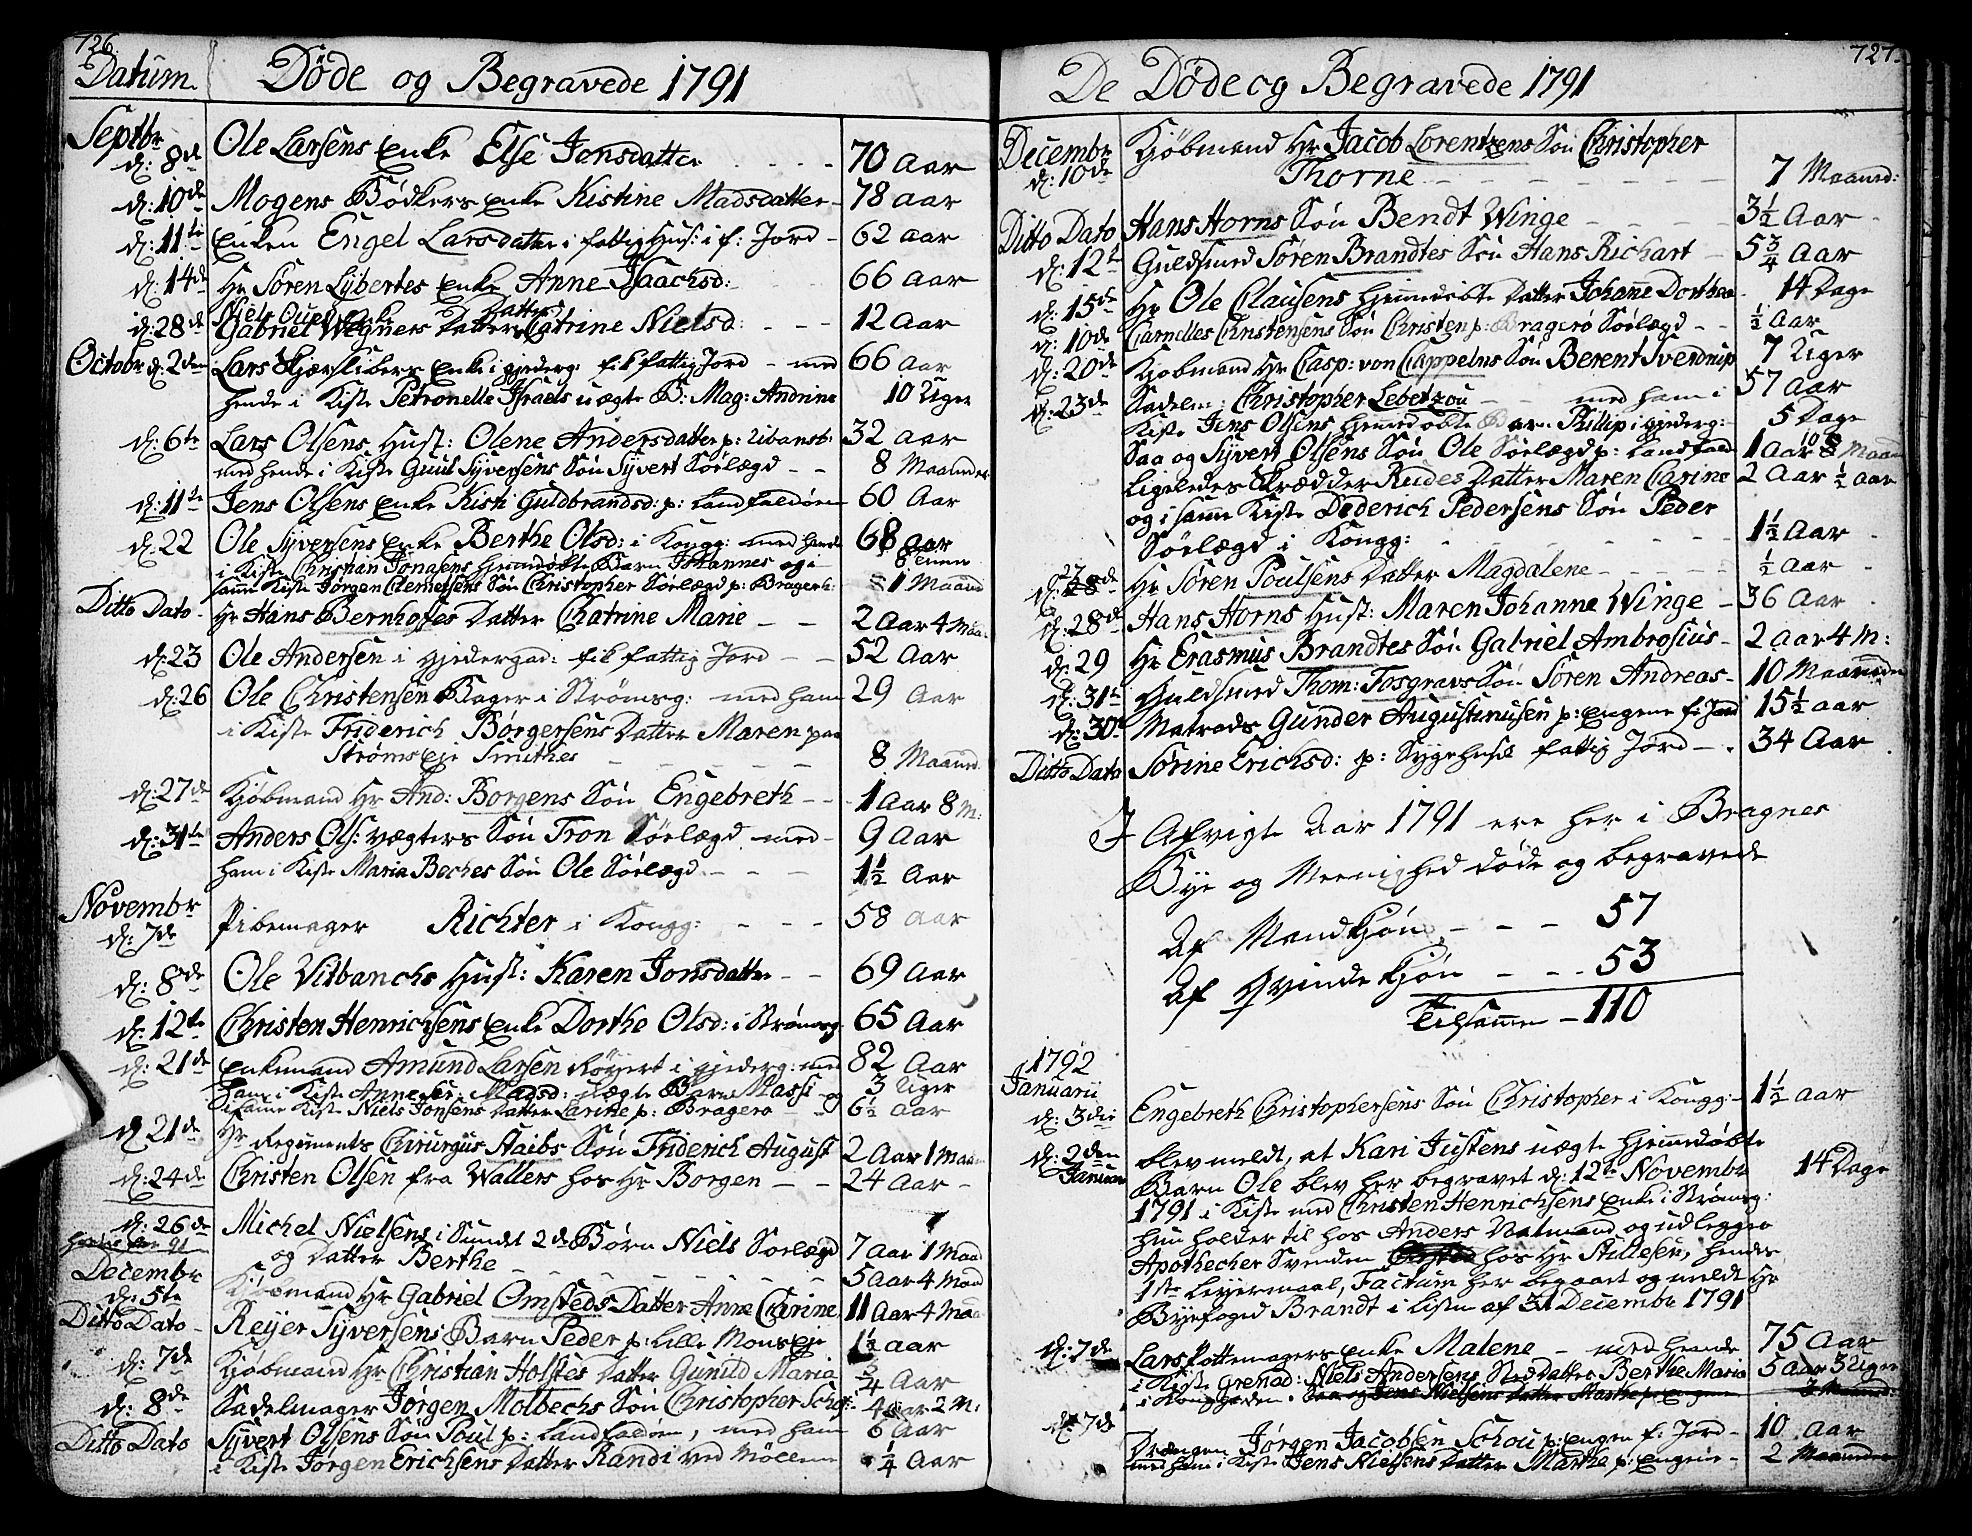 726.
Datum. Døde og Begravede 1791
Septbr
d: 8de Ole Larsens Enke Else Jensdatter - - - - 70 Aar
d: 10de Mogens Bødkers Enke Kistine Madsdatter - 78 aar
d: 11te Enken Engel Larsdatter i fattig Hus: i f: Jord - 62 aar
d: 14de Hr Søren Lybertes Enke Anne Isaachsd: 66 aar
Datter
d: 28de Gabriel Wegners Datter Catrine Nielsd: - - - 12 Aar
Octobr d: 2den Lars Skjærslibers Enke i gjederg: fik fattig Jord - med 66 aar
hende i Kiste Petronelle Israels uægte B: Mag: Andrine 10 Uger
d: 6te Lars Olsens Hust: Olene Andersdatter p: 32 aar
med hende i Kiste Guul Syversens Søn Syvert Sørlægd - - 8 Maaneder
d: 11te Jens Olsens Enke Kisti Guldbrandsd: p: Landfaldøen 60 Aar
d: 22 Ole Syversens Enke Berthe Olsd: i Kongg: med hende 68 aar
i Kiste Christian Jonasens hiemdøbte Barn Johannes og i
samme Kiste Jørgen Clemetsens Søn Christopher Sørlægd p: 1 Maaned
Ditto Dato - Hr Hans Bernhofts Datter Chatrine Marie - - 2 Aar 4 Maa
d: 23 Ole Andersen i Gjedergad: fik fattig Jord - - 52 Aar
d: 26 Ole Christensen Bager i Strømsg: med ham 29 Aar
i Kiste Friderich Børgersens Datter Maren paa
Strømsøe Smithes - - - - - 8 Maaned
d: 27de Kjøbmand Hr And: Borgens Søn Engebreth - - 1 Aar 8 M:
d: 31te Anders Ols: vægters Søn Tron Sørlægd med - 9 Aar
ham i Kiste Maria Beches Søn Ole Sørlægd - - - 1½ Aar
Novembr
d: 7de Pibemager Richter i Kongg: - - - 58 aar
d: 8de Ole Vitbanchs Hust: Karen Jonsdatter - - 69 Aar
d: 12te Christen Henrichsens Enke Dorthe Olsd: i Strømsg 65 Aar
d: 21de Enkemand Amund Larsen i gjederg: med 82 Aar
ham i Kiste Madsd: uægte Barn 3 Uger
i samme Kiste Niels Jonsens Datter p: Bragerø - og 6½ Aar
d 21de Hr Regiments Chirurgus Staibs Søn Friderich August 2 Aar 1 Maa
d: 24de Christen Olsen fra Wallers hos Hr Borgen - - 24 Aar -
d: 26de Michel Nielsens i Sundet 2de Børn Niels Sørlægd 7 Aar 1 Maad
og Datter Berthe - - - - - - 5 Aar 4 Maad
Decembr
d: 5te Kjøbmand Hr Gabriel Omsteds Datter Anne Cathrine 11 Aar 4 Maa
Ditto Dato - Reyer Syversens Barn Peder p: lille 1½ Aar
d: 7de Kjøbmand Hr Christian Holstes Datter Gunild Maria ¾ Aar
d: 8de Sadelmager Jørgen Molbechs Søn Christopher 4 Aar 2 M:
Ditto Dato Syvert Olsens Søn Poul p: Landfaldøen, med ham 6 Aar
i Kiste Jørgen Erichsens Datter Randi ved Møllene ¼ Aar
727.
De Døde og Begravede 1791
Decembr
d: 10de Kjøbmand Hr Jacob Lorentzens Søn Christopher
Thorne - - - - - - - 7 Maaned:
Ditto Dato Hans Horns Søn Bendt Winge - - - - 3½ Aar -
d: 12te Guldsmed Søren Brandtes Søn Hans Richart - 5¾ Aar
d: 15de Hr Ole Clausens hjemmedøbte Datter Johanne Dorthea - 14 Dage
d: 10de Carnelles Christensens Søn Christen p: Bragerø Sørlægd - - ½ Aar
d: 20de Kjøbmand Hr Casp: von Cappelns Søn Berent Sverdrup 7 Uger
d: 23de Sadelm: Christopher Lebetzou - - med ham i 57 Aar
Kiste Jens Olsens hjemdøbte Barn Phillip i gjederg: 5 Dage
Saa og Syvert Olsens Søn Ole Sørlægd p: Landfald 1 Aar 10 8 Maan
Ligeledes Skrædder Rudes Datter Maren Carine 2 Aar ½ aar
og i samme Kiste Diderich Pedersens Søn Peder
Sørlægd i Kongg: - - - - - - 1½ Aar -
27
d: 28de Hr Søren Poulsens Datter Magdalene - - - - - ½ Aar -
d: 28de Hans Horns Hust: Maren Johanne Winge - 36 Aar
d: 29 Hr Erasmus Brandtes Søn Gabriel Ambrosius - 2 Aar 4 M:
d: 31te Guldsmed Thom: Fosgravs Søn Søren Andreas - 10 Maaneder
d: 30 Matrods Gunder Augustinusen p: Engene f: Jord 15½ aar
Ditto Dato Sørine Erichsd: p: Sygehuset fattig Jord - - . 34 Aar .
I Afvigte Aar 1791 ere her i Bragnes
Bye og Meenighed døde og begravede
Af Mandkjøn - - - 57
Af Qvindekjøn - - - 53
Tilsammen - 110
1792
Januarii
d: 3die Engebreth Christophersens Søn Christopher i Kongg: - 1½ Aar
d: 2den Januar blev meldt, at Kari Justens uægte hjemmedøbte
Barn Ole blev her begravet d: 12te Novembr 14 Dage
1791 i Kiste med Christen Henrichsens Enke i Strømsg:
hun holder til hos Anders Natmand, og udlegger
Apothecher Svenden hos Hr Stillesen, hendes
1ste Leyermaal, Factum her begaaet og meldt Hr
Byefoged Brandt i Listen af 31 Decembr 1791
d: 7de Lars Pottemagers Enke Malene - med hende 75 Aar
i Kiste Grenad: Niels Andersens StedDatter Berthe Maria 5 Aar 3 Uger
i Kongsgaden. Saa og Jens Nielsens Datter Marthe p: Engene 2 Maaned:
d: 7de Drængen Jørgen Jacobsen Schou p: Engen f: Jord - 10 Aar
med ham i Kiste Jens Nielsens Datter Marthe p: Engene - 2 Maaneder